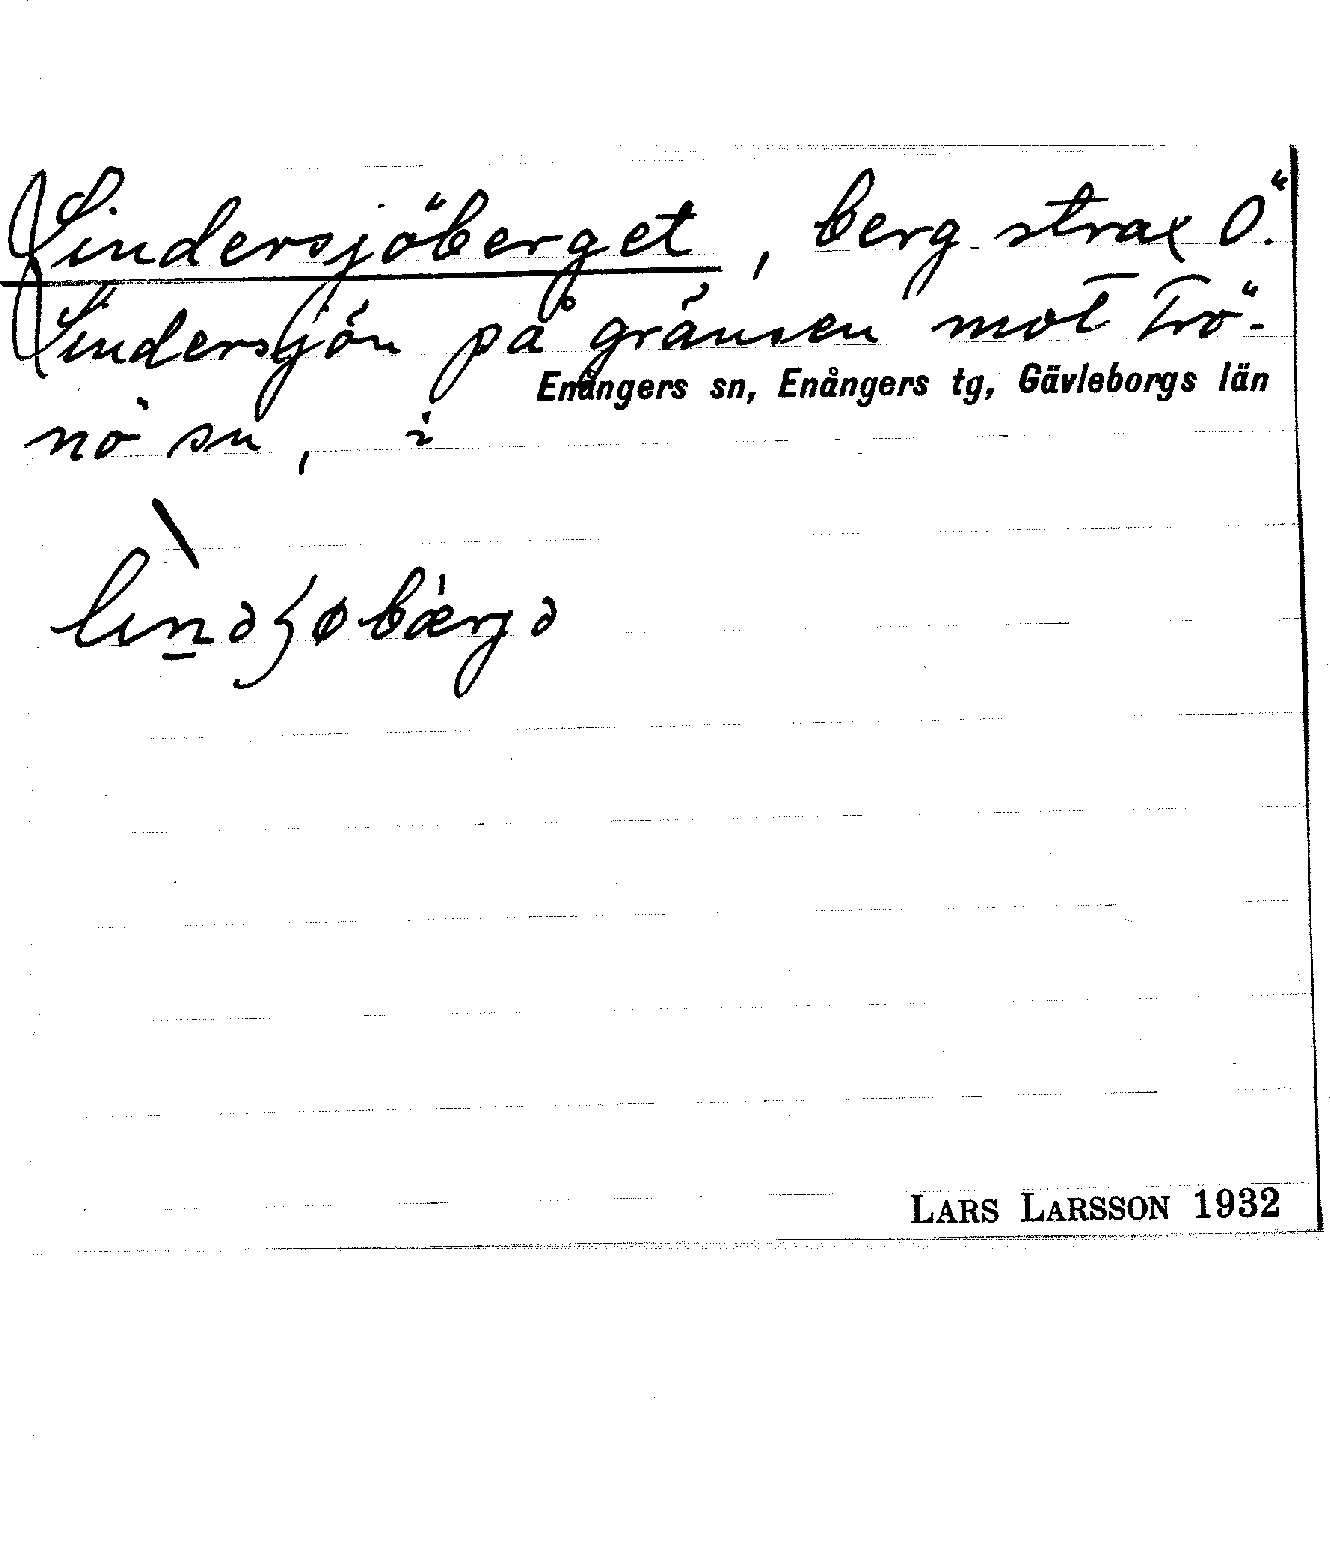 Lindersjöberget, berg strax Ö.
Lindersjön på gränsen mot Trö-
Enångers sn, Enångers tg, Gävleborgs län
nö sn, i
LARS LARSSON 1932